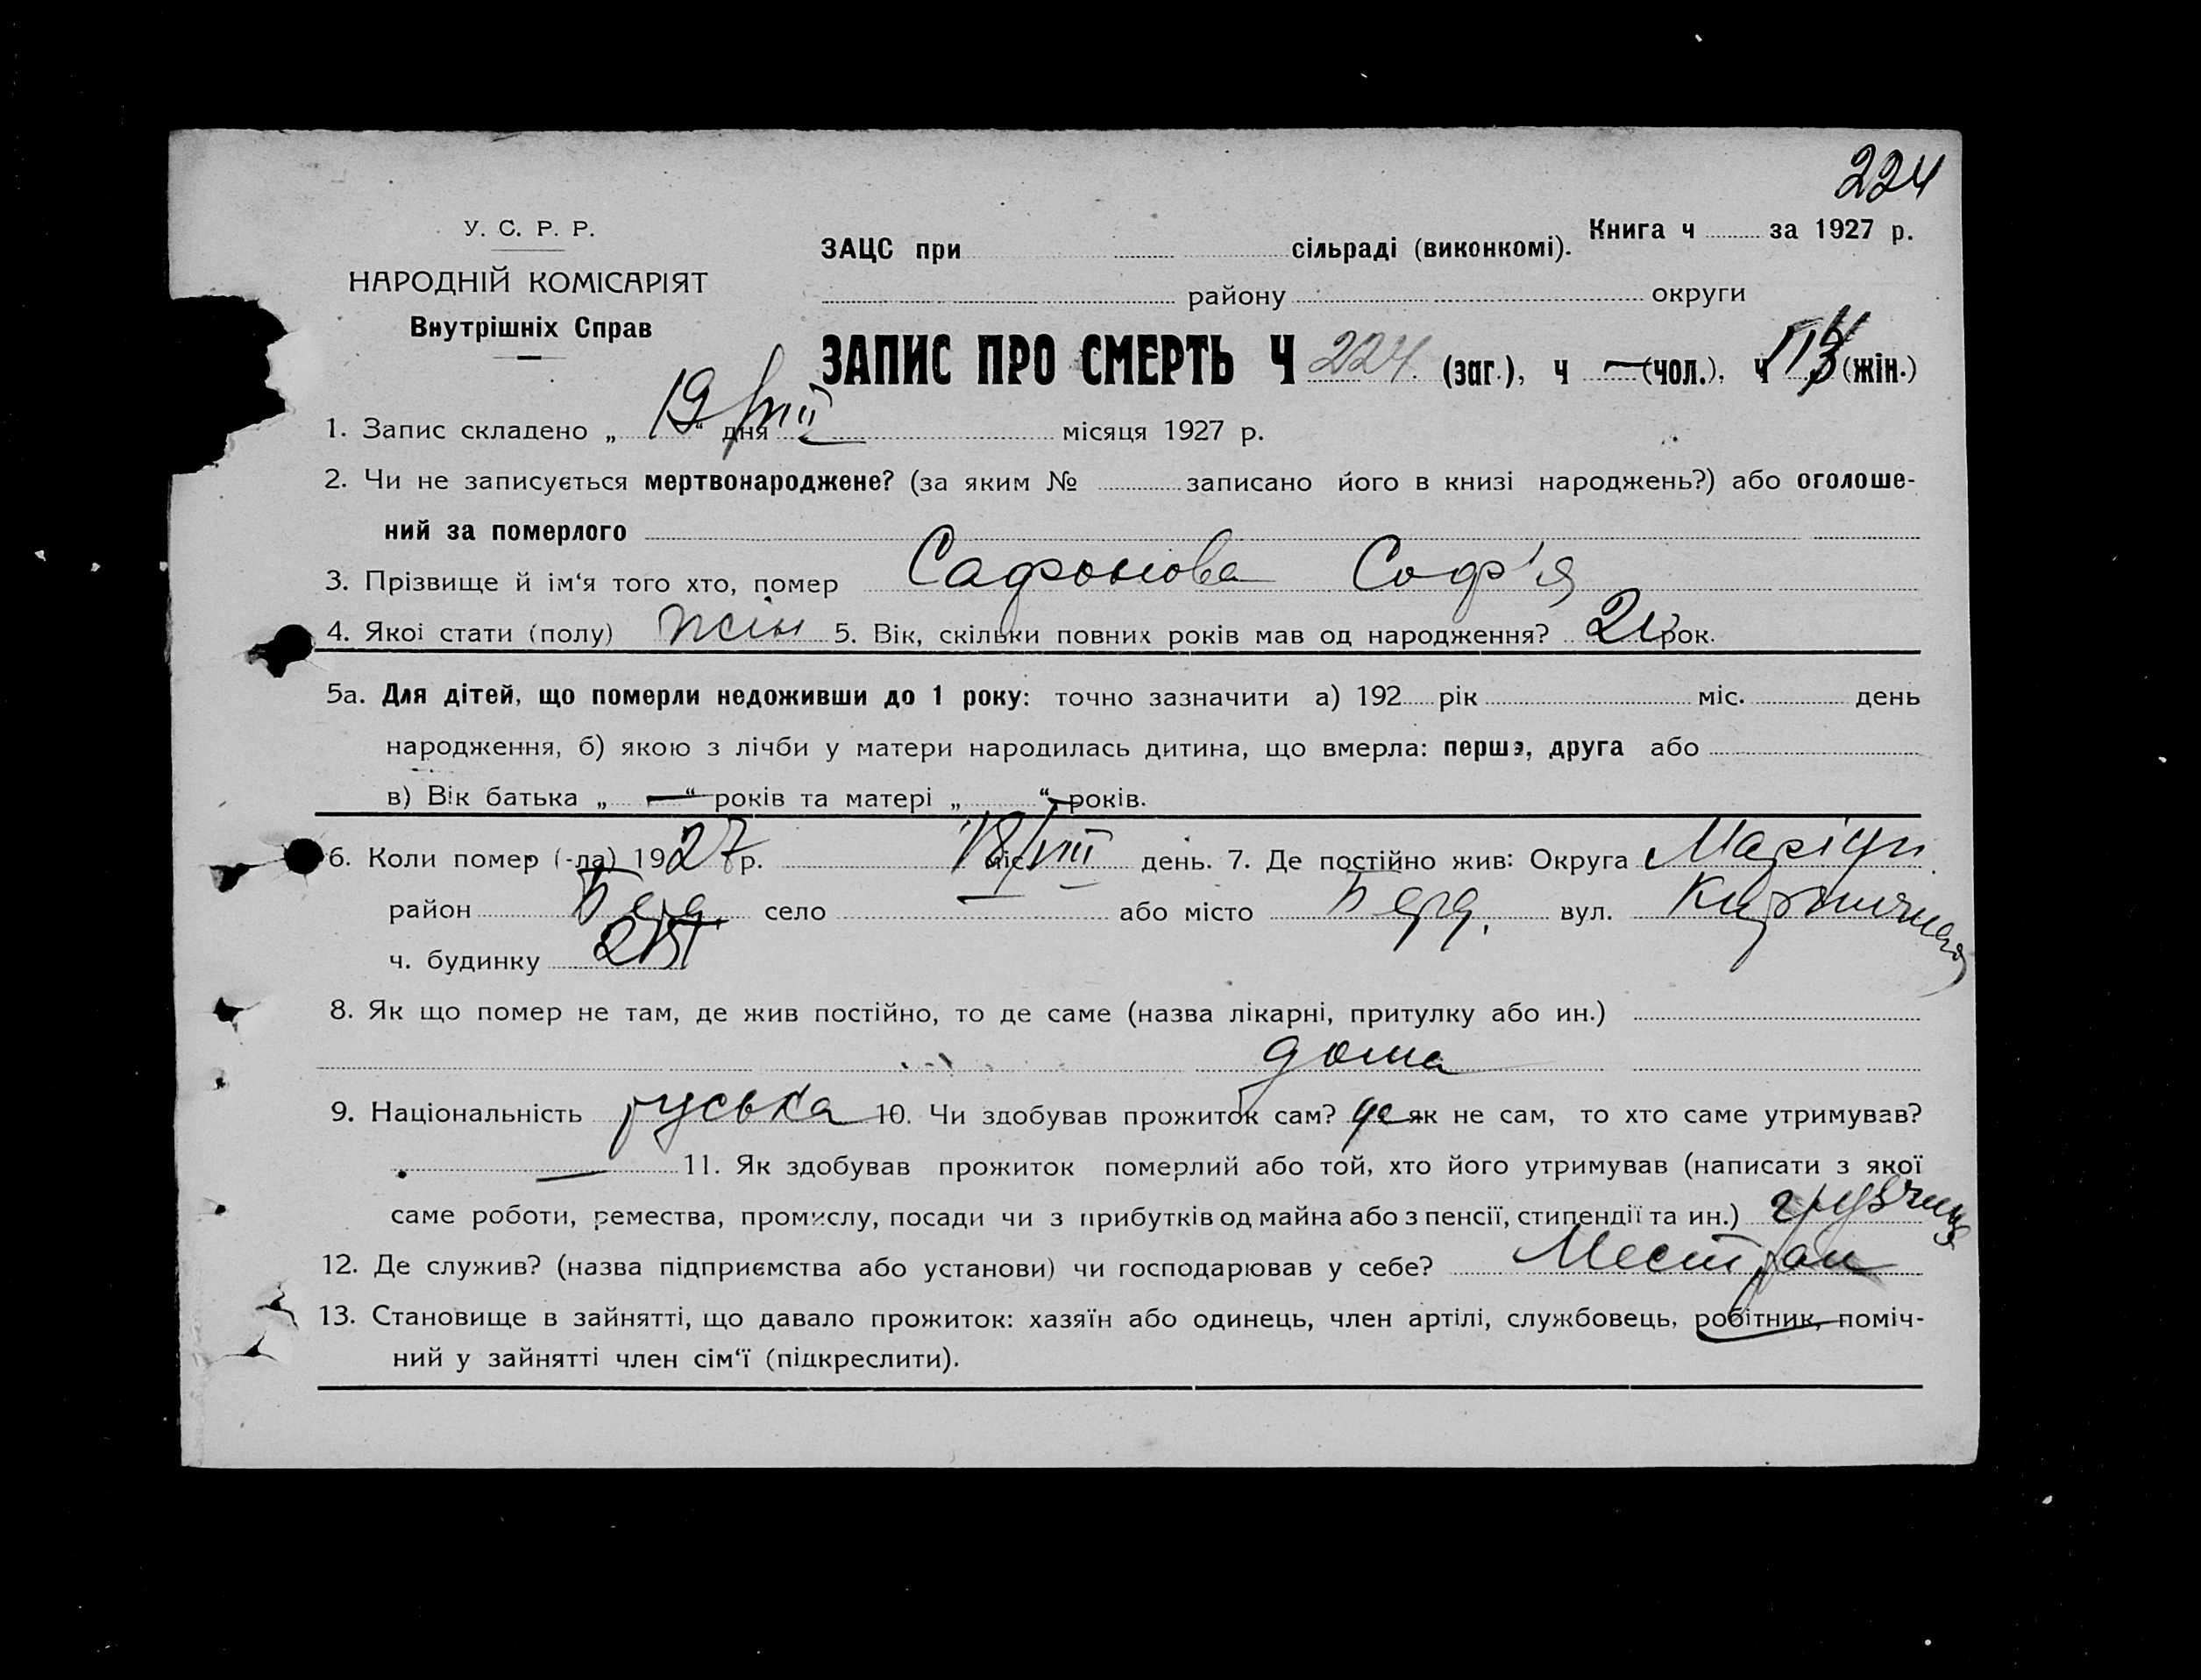 224
У. С. Р. Р.
НАРОДНІЙ КОМІСАРІЯТ
Внутрішніх Справ
Книга ч за 1927 р.
ЗАЦС при сільраді (виконкомі).
району округи
ЗАПИС ПРО СМЕРТЬ Ч 224 (заг.), ч — (чол.), ч (жін.)
1. Запис складено „ 19/VIII “ дня місяця 1927 р.
2. Чи не записується мертвонароджене? (за яким № записано його в книзі народжень?) або оголоше-
ний за померлого
3. Прізвище й ім‘я того хто, помер Сафонова Соф'я
4. Якої стати (полу) жін 5. Вік, скільки повних років мав од народження? рок.
5а. Для дітей, що померли недоживши до 1 року: точно зазначити а) 192 рік міс. день
народження, б) якою з лічби у матери народилась дитина, що вмерла: перша, друга або
в) Вік батька „ — “ років та матері „ “ років.
6. Коли помер (-ла) 1927 р. 18/VIII міс день. 7. Де постійно жив: Округа Маріуп.
район Берд. село — або місто Берд. вул. Кирпичная
ч. будинку
8. Як що помер не там, де жив постійно, то де саме (назва лікарні, притулку або ин.)
дома
9. Національність руська 10. Чи здобував прожиток сам? да як не сам, то хто саме утримував?
— 11. Як здобував прожиток померлий або той, хто його утримував (написати з якої
саме роботи, ремества, промислу, посади чи з прибутків од майна або з пенсії, стипендії та ин.) грузчиц
12. Де служив? (назва підприємства або установи) чи господарював у себе? Местран
13. Становище в зайнятті, що давало прожиток: хазяїн або одинець, член артілі, службовець, робітник, поміч-
ний у зайнятті член сім‘ї (підкреслити).